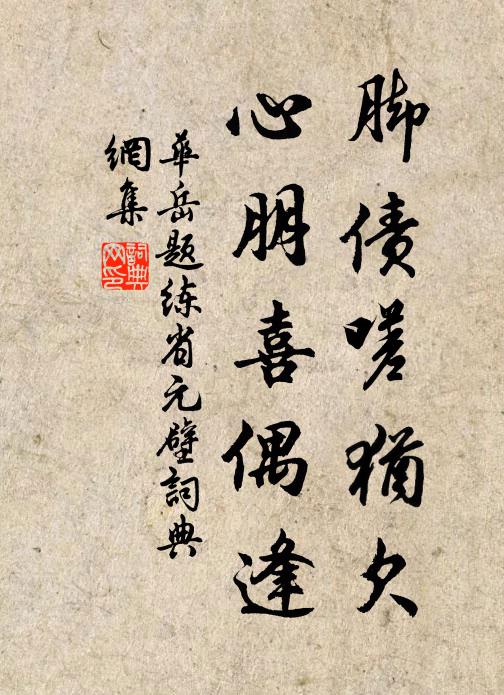 脚债嗟犹欠
心朋喜偶逢
华岳题练省元壁词典
網集
詞典网印